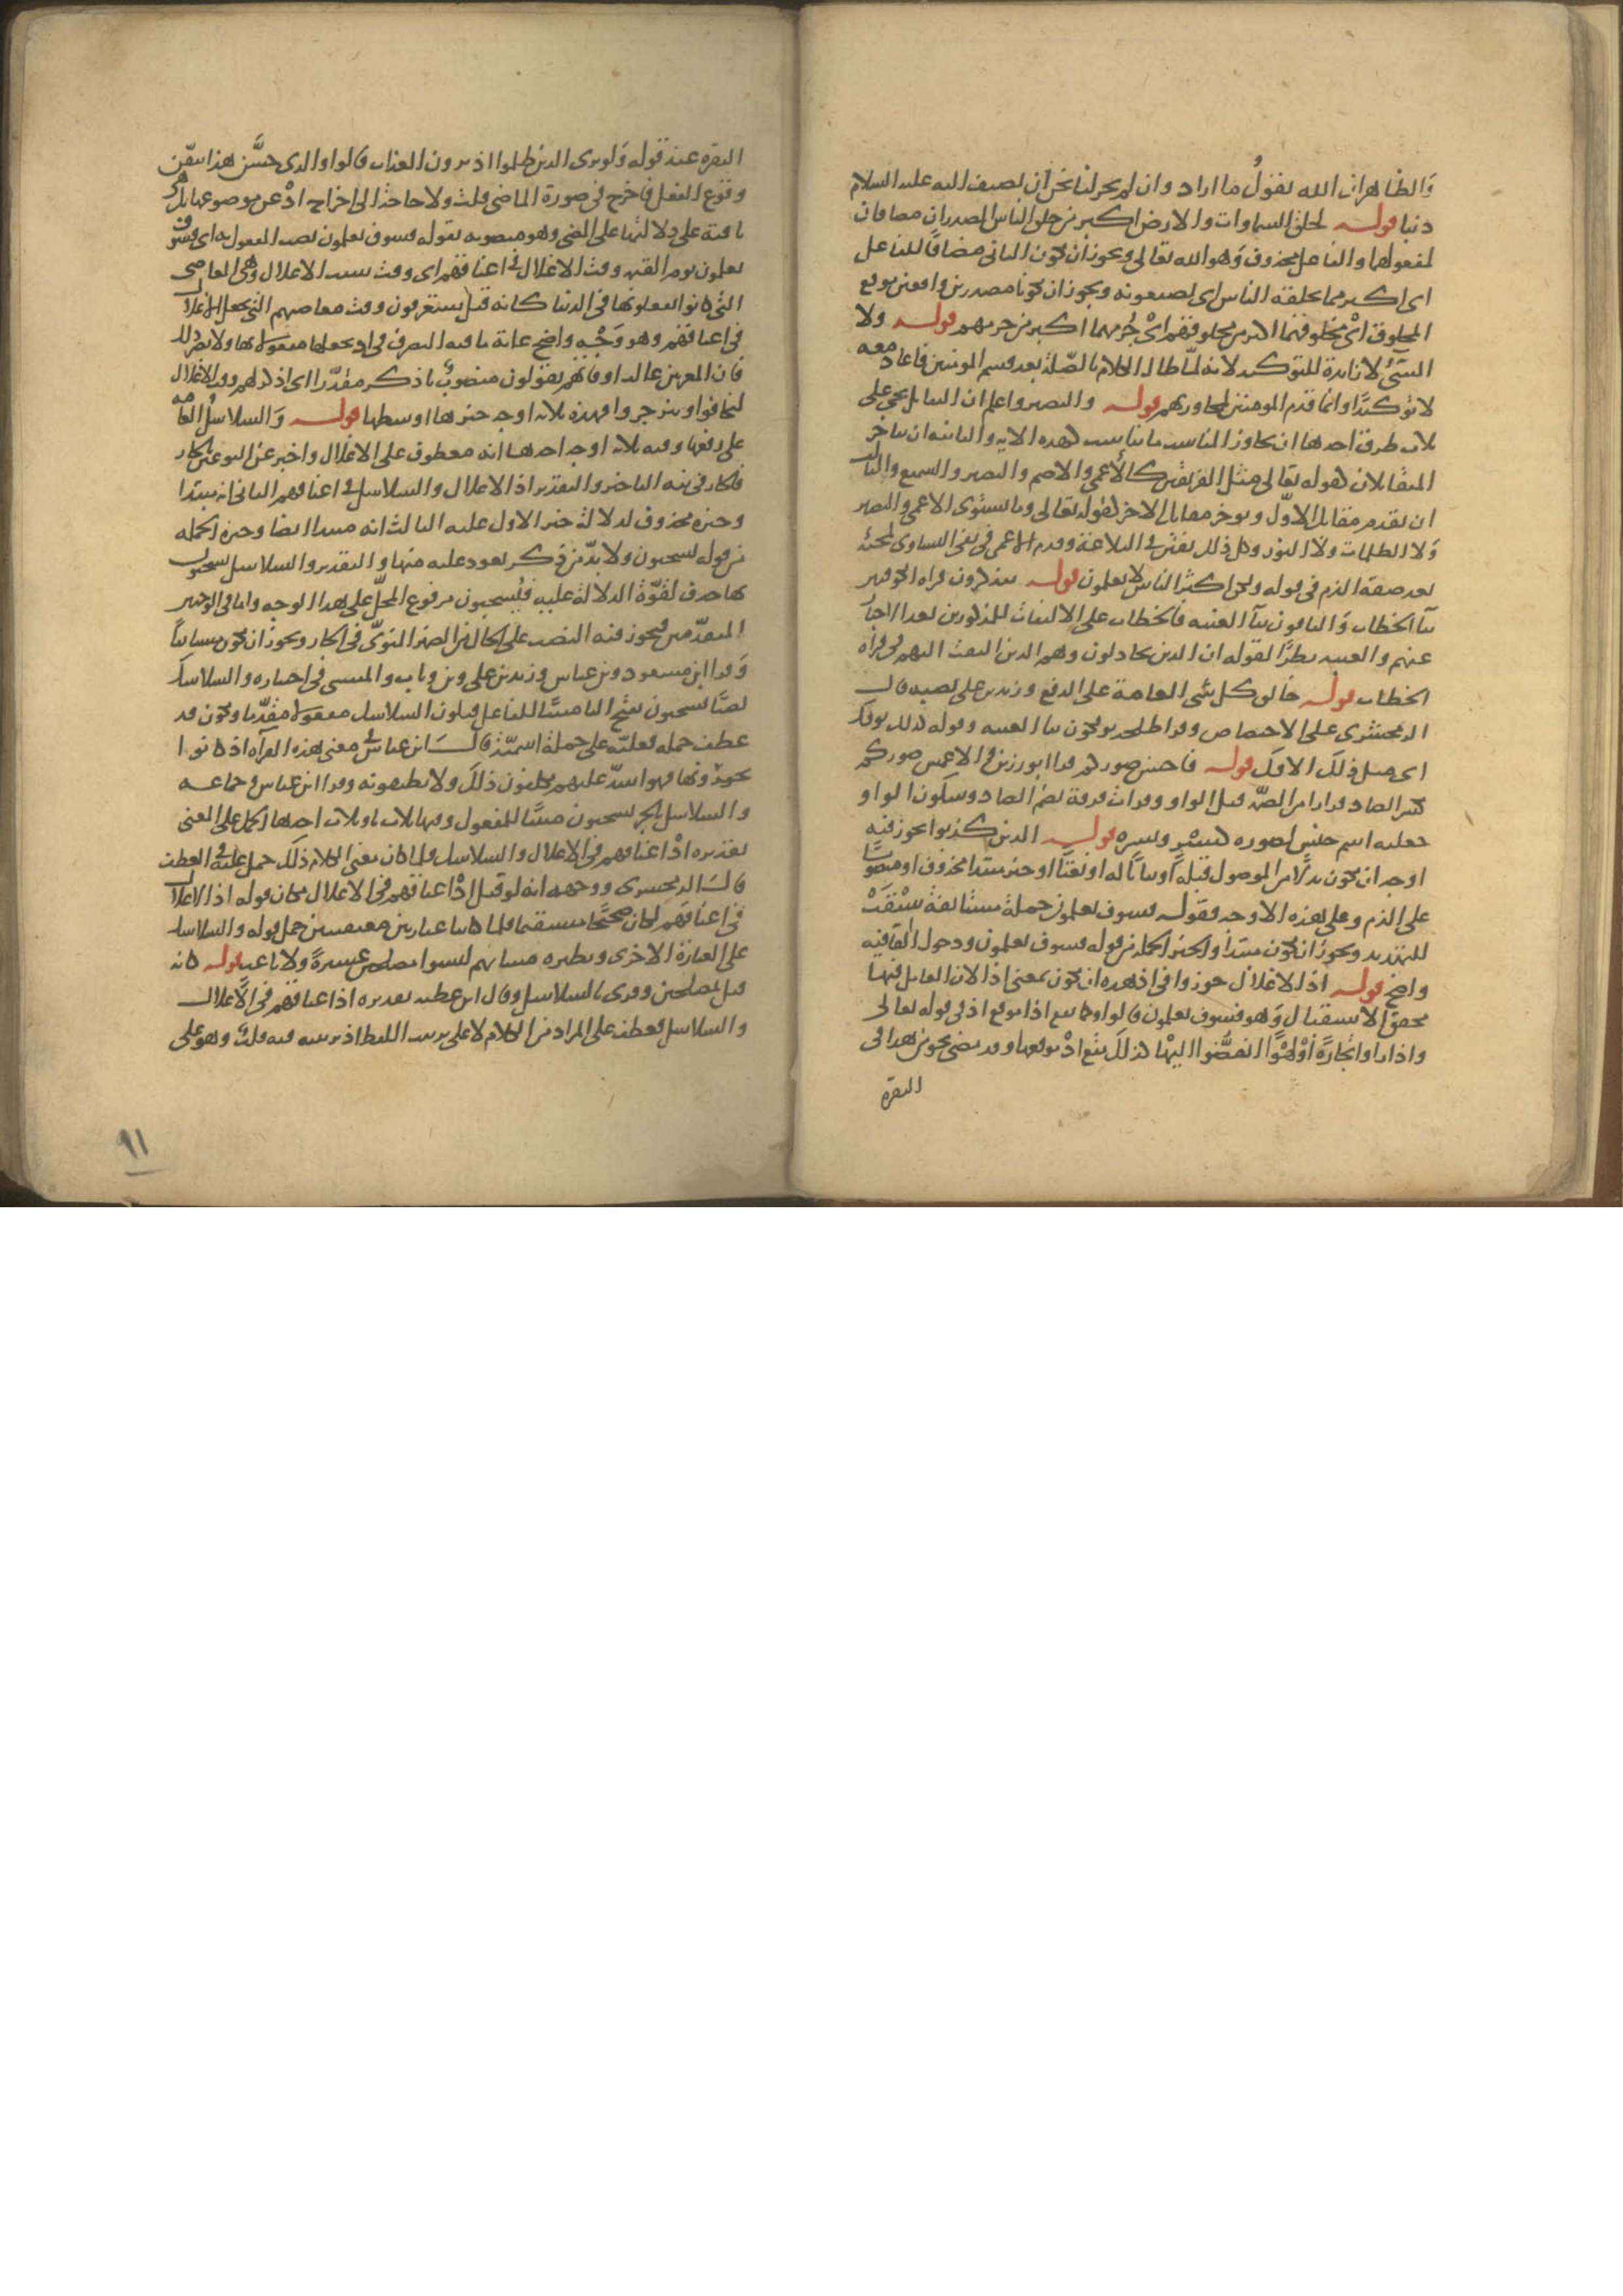 والظاهر ان الله يقول ما اراد وان لم يجز لنا نحن ان نضيف اليه عليه السلام
دنبا قوله لخلق السماوات والارض اكبر من خلق الناس المصدران مضافان
لمفعولهما والفاعل محذوف وهو الله تعالى ويجوز ان يكون الثاني مضافا للفاعل
اي اكبر مما يخلقه الناس اي يصنعونه ويجوز ان يكونا مصدرين واقعين موقع
المخلوق اي مخلوقهما اكبر من مخلوقهم اي جرمهما اكبر من جرمهم قوله ولا
المسيء لا زايدة للتوكيد لانه لما طال الكلام بالصلة بعد قسم المومنين فاعاد معه
لا توكيدا وانما قدم المومنين لمجاورتهم قوله والبصير واعلم ان التقابل يجي على
ثلاث طرق احدها ان يجاور المناسب ما يناسبه كهذه الاية والثانية ان يتاخر
المتقابلان كقوله تعالى مثل الفريقين كالاعمى والاصم والبصير والسميع والثالث
ان يقدم مقابل الاول ويوخر مقابل الاخر كقوله تعالى وما يستوي الاعمى والبصير
ولا الظلمات ولا النور وكل ذلك تفنن في البلاغة وقدم الاعمى في نفي التساوي لمجيئه
بعد صفة الذم في قوله ولكن اكثر الناس لا يعلمون قوله يتذكرون قراه الكوفيون
بتا الخطاب والباقون بيا الغيبه فالخطاب على الالتفات للمذكورين بعد الاخبار
عنهم والغيبه نظرا لقوله ان الذين يجادلون وهم الذين التفت اليهم في قراه
الخطاب قوله خالق كل شي العامة على الرفع وزيد بن علي نصبه قال
الزمخشري على الاختصاص وقرا طلحه يوفكون بيا الغيبه وقوله كذلك يوفك
اي مثل ذلك الافك قوله فاحسن صوركم قرا ابو رزين والاعمش صوركم
بكسر الصاد فرارا من الضمة قبل الواو وقرات فرقة بضم الصاد وسكون الواو
جعلته اسم جنس لصوره كبسر وبسره قوله الذين كذبوا يجوز فيه
اوجه ان يكون بدلا من الموصول قبله او بيانا له او نعتا او خبر مبتدا محذوف او منصوبا
على الذم وعلى هذه الاوجه فقوله فسوف يعلمون جملة مستانفة سيقت
للتهديد ويجوز ان يكون مبتدا والخبر الجملة من قوله فسوف يعلمون ودخول الفا فيه
واضح قوله اذ الاغلال جوزوا في اذ هذه ان تكون بمعنى اذا لان العامل فيها
محقق الاستقبال وهو فسوف يعلمون قالوا وكما تقع اذا موقع اذ في قوله تعالى
واذا راوا تجارة او لهوا انفضوا اليها كذلك تقع اذ موقعها وقد مضى نحو من هذا في
البقرة
البقرة عند قوله ولو يرى الذين ظلموا اذ يرون العذاب قالوا والذي حسن هذا تيقن
وقوع الفعل فاخرج في صورة الماضي قلت ولا حاجة الى اخراج اذ عن موضوعها بل هي
باقية على دلالتها على المضي وهو منصوبه بقوله فسوف يعلمون نصب المفعول به اي فسوف
يعلمون يوم القيمه وقت الاغلال في اعناقهم اي وقت سبب الاغلال وهي المعاصي
التي كانوا يفعلونها في الدنيا كانه قيل سيعرفون وقت معاصيهم التي تجعل الاغلال
في اعناقهم وهو وجه واضح غاية ما فيه التصرف في اذ بجعلها مفعولا بها ولا يضر ذلك
فان المعربين غالب اوقاتهم يقولون منصوب باذكر مقدرا اي اذكر لهم وقت الاغلال
ليخافوا وينزجروا فهذه ثلاثة اوجه خيرها اوسطها قوله والسلاسل العامة
على رفعها وفيه ثلاثة اوجه احدها انه معطوف على الاغلال واخبر عن النوعين بالجار
فالجار في نية التاخير والتقدير اذ الاغلال والسلاسل في اعناقهم الثاني انه مبتدا
وخبره محذوف لدلالة خبر الاول عليه الثالث انه مبتدا ايضا وخبره الجمله
من قوله يسحبون ولا بد من ذكر يعود عليه منها والتقدير والسلاسل يسحبون
بها حذف لقوة الدلالة عليه فيسحبون مرفوع المحل على هذا الوجه واما في الوجهين
المتقدمين فيجوز فيه النصب على الحال من الضمير المنوي في الجار ويجوز ان يكون مستانفا
وقرا ابن مسعود وابن عباس وزيد بن علي وابن وثاب والمسيبي في اختياره والسلاسل
نصبا يسحبون بفتح اليا مبنيا للفاعل فيكون السلاسل مفعولا مقدما ويكون قد
عطف جملة فعلية على جملة اسمية قال ابن عباس في معنى هذه القراه اذ كانوا
يجرونها فهو اشد عليهم يكلفون ذلك ولا يطيقونه وقرا ابن عباس وجماعه
والسلاسل بالجر يسحبون مبنيا للمفعول وفيها ثلاث تاويلات احدها الحمل على المعنى
تقديره اذ اعناقهم في الاغلال والسلاسل فلما كان معنى الكلام ذلك حمل عليه في العطف
قال الزمخشري ووجهه انه لو قيل اذ اعناقهم في الاغلال مكان قوله اذ الاغلال
في اعناقهم لكان صحيحا مستقيما فلما كانتا عبارتين معتقبتين حمل قوله والسلاسل
على العبارة الاخرى ونظيره مشائيم ليسوا مصلحين عشيرة ولا ناعب قوله كانه
قيل بمصلحين وقرى بالسلاسل وقال ابن عطيه تقديره اذ اعناقهم في الاغلال
والسلاسل فعطف على المراد من الكلام لا على ترتيب اللفظ اذ ترتيبه فيه قلب وهو على
٩١